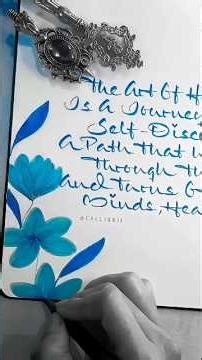 The Art Of H
Is A Journey
Self-Disc
A Path That
Through Th
And Turns G
Minds, Hea
@CALLIBRIE